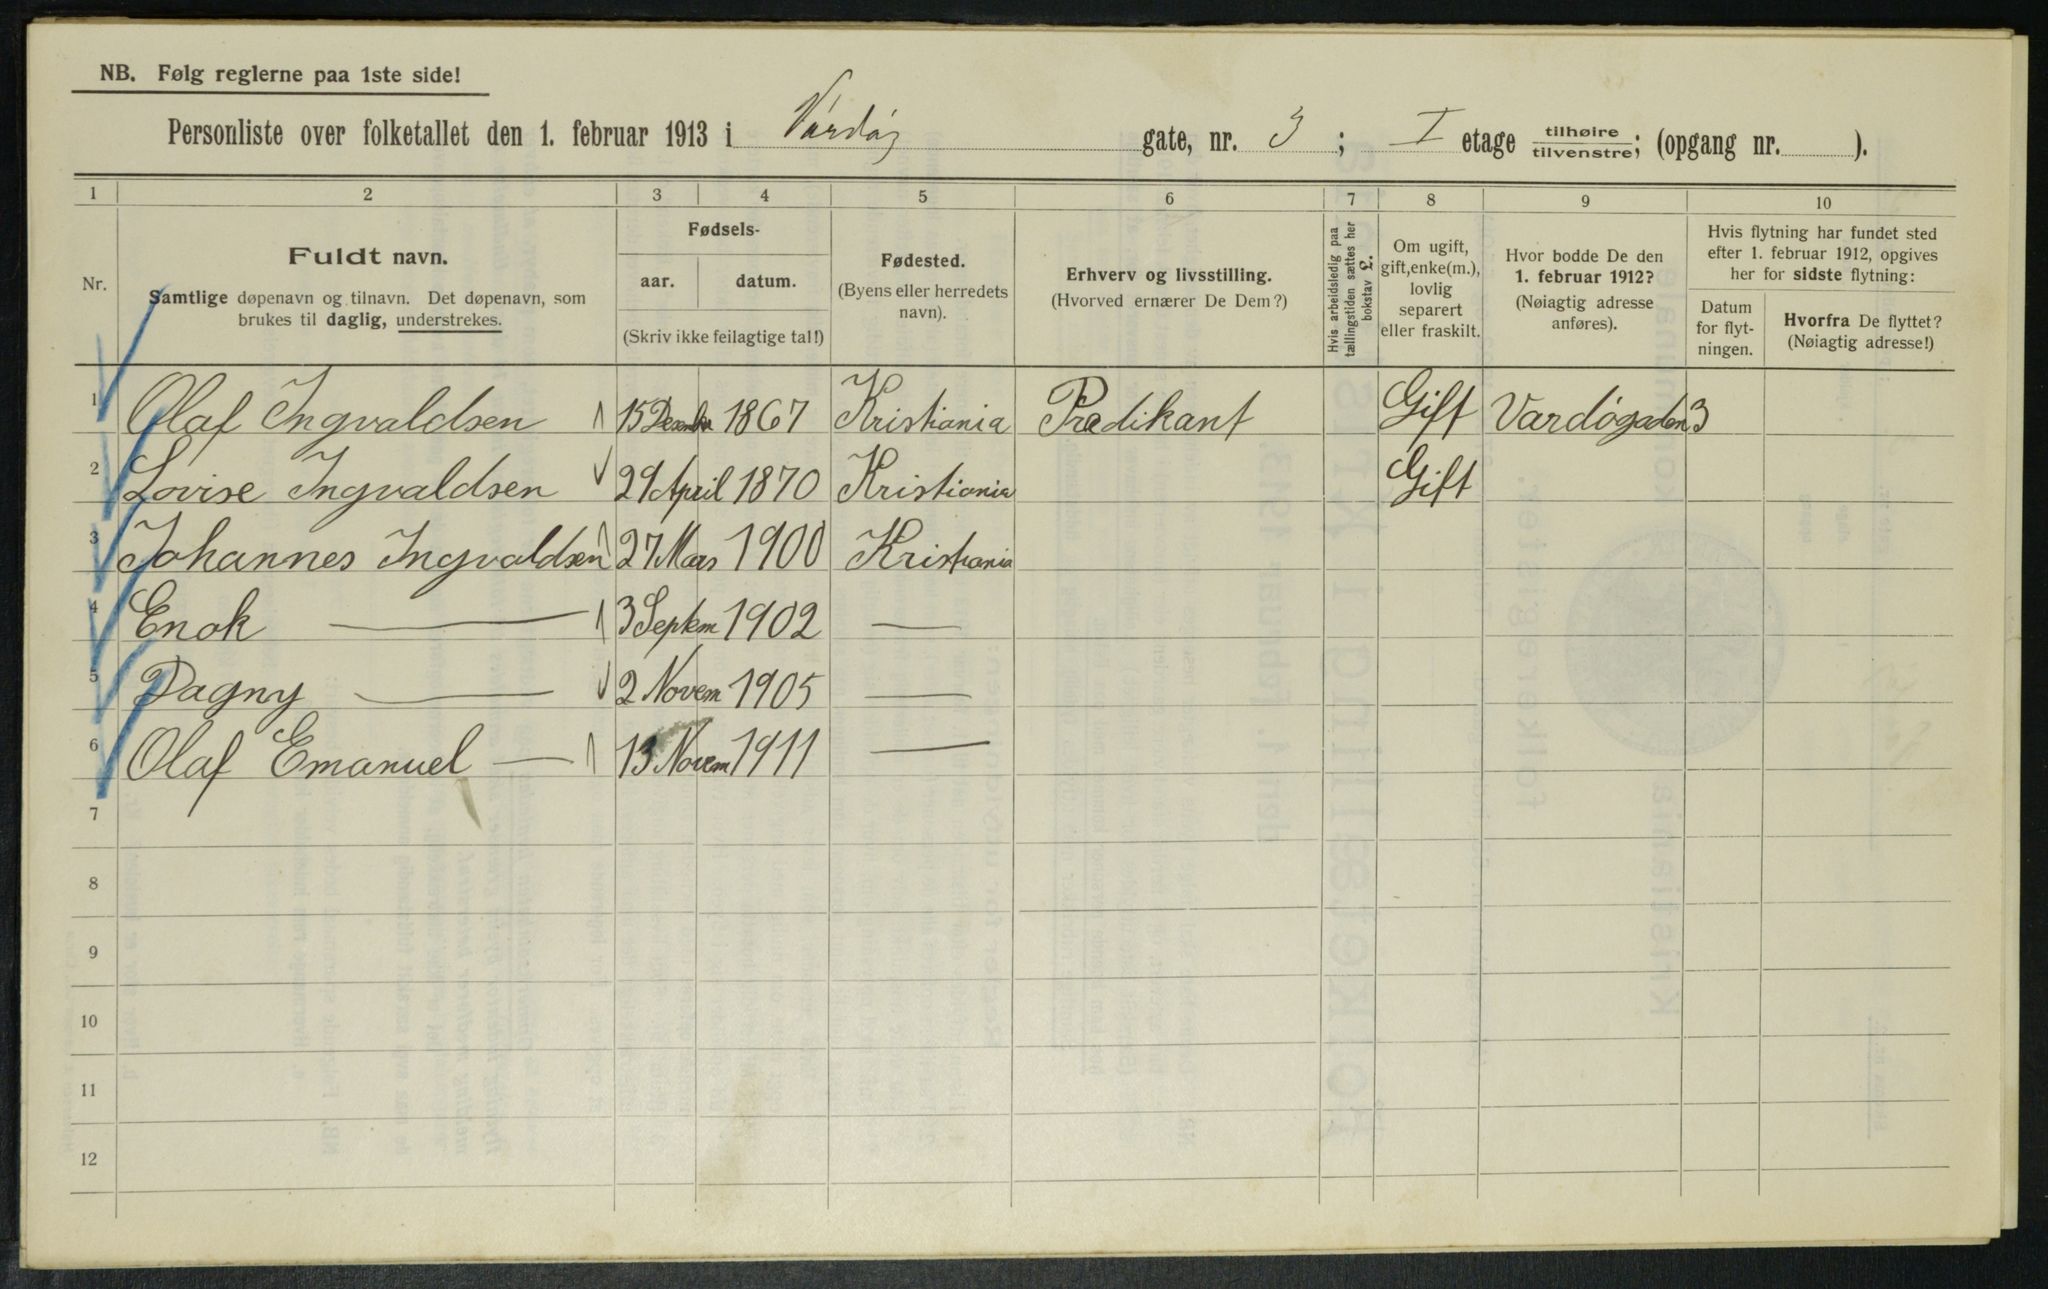 NB. Følg reglerne paa 1ste side!
Personliste over folketallet den 1. februar 1913 i Vardøg gate, nr. 3 ; I etage tilhøire tilvenstre; (opgang nr. ).
1 2 3 4 5 6 7 8 9 10
Nr.
Fuldt navn.
Samtlige døpenavn og tilnavn. Det døpenavn, som
brukes til daglig, understrekes.
Fødsels-
aar. datum.
(Skriv ikke feilagtige tal!)
Fødested.
(Byens eller herredets
navn).
Erhverv og livsstilling.
(Hvorved ernærer De Dem?)
Hvis arbeidsledig paa
tællingstiden sættes her
bokstav £.
Om ugift,
gift, enke(m.),
lovlig
separert
eller fraskilt.
Hvor bodde De den
1. februar 1912?
(Nøiagtig adresse
anføres).
Hvis flytning har fundet sted
efter 1. februar 1912, opgives
her for sidste flytning:
Datum
for flyt-
ningen.
Hvorfra De flyttet?
(Nøiagtig adresse!)
1 Olaf Ingvaldsen 15 Desember 1867 Kristiania Prædikant Gift Vardøgaden 3
2 Lovise Ingvaldsen 29 April 1870 Kristiania Gift
3 Johannes Ingvaldsen 27 Mars 1900 Kristiania
4 Enok — 3 Septem 1902 —
5 Dagny — 2 Novem 1905 —
6 Olaf Emanuel — 13 Novem 1911 —
7
8
9
10
11
12